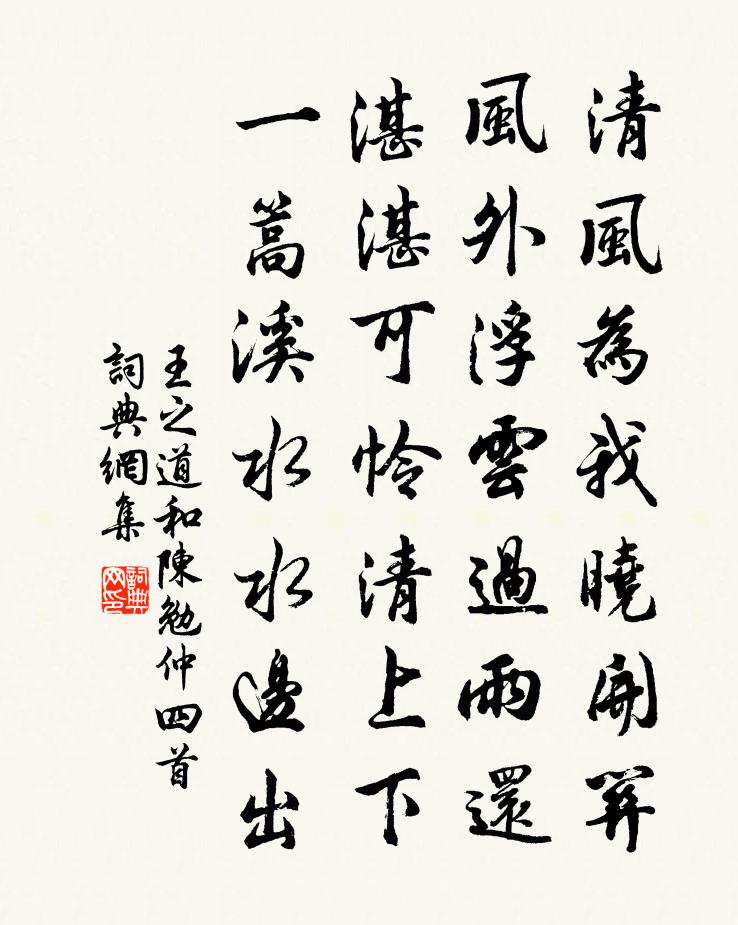 清風為我曉開
風外浮雲過雨還
湛湛可怜清上下
一篙溪水水邊出
王之道和陳勉仲四首
詞典網集
詞典
网印